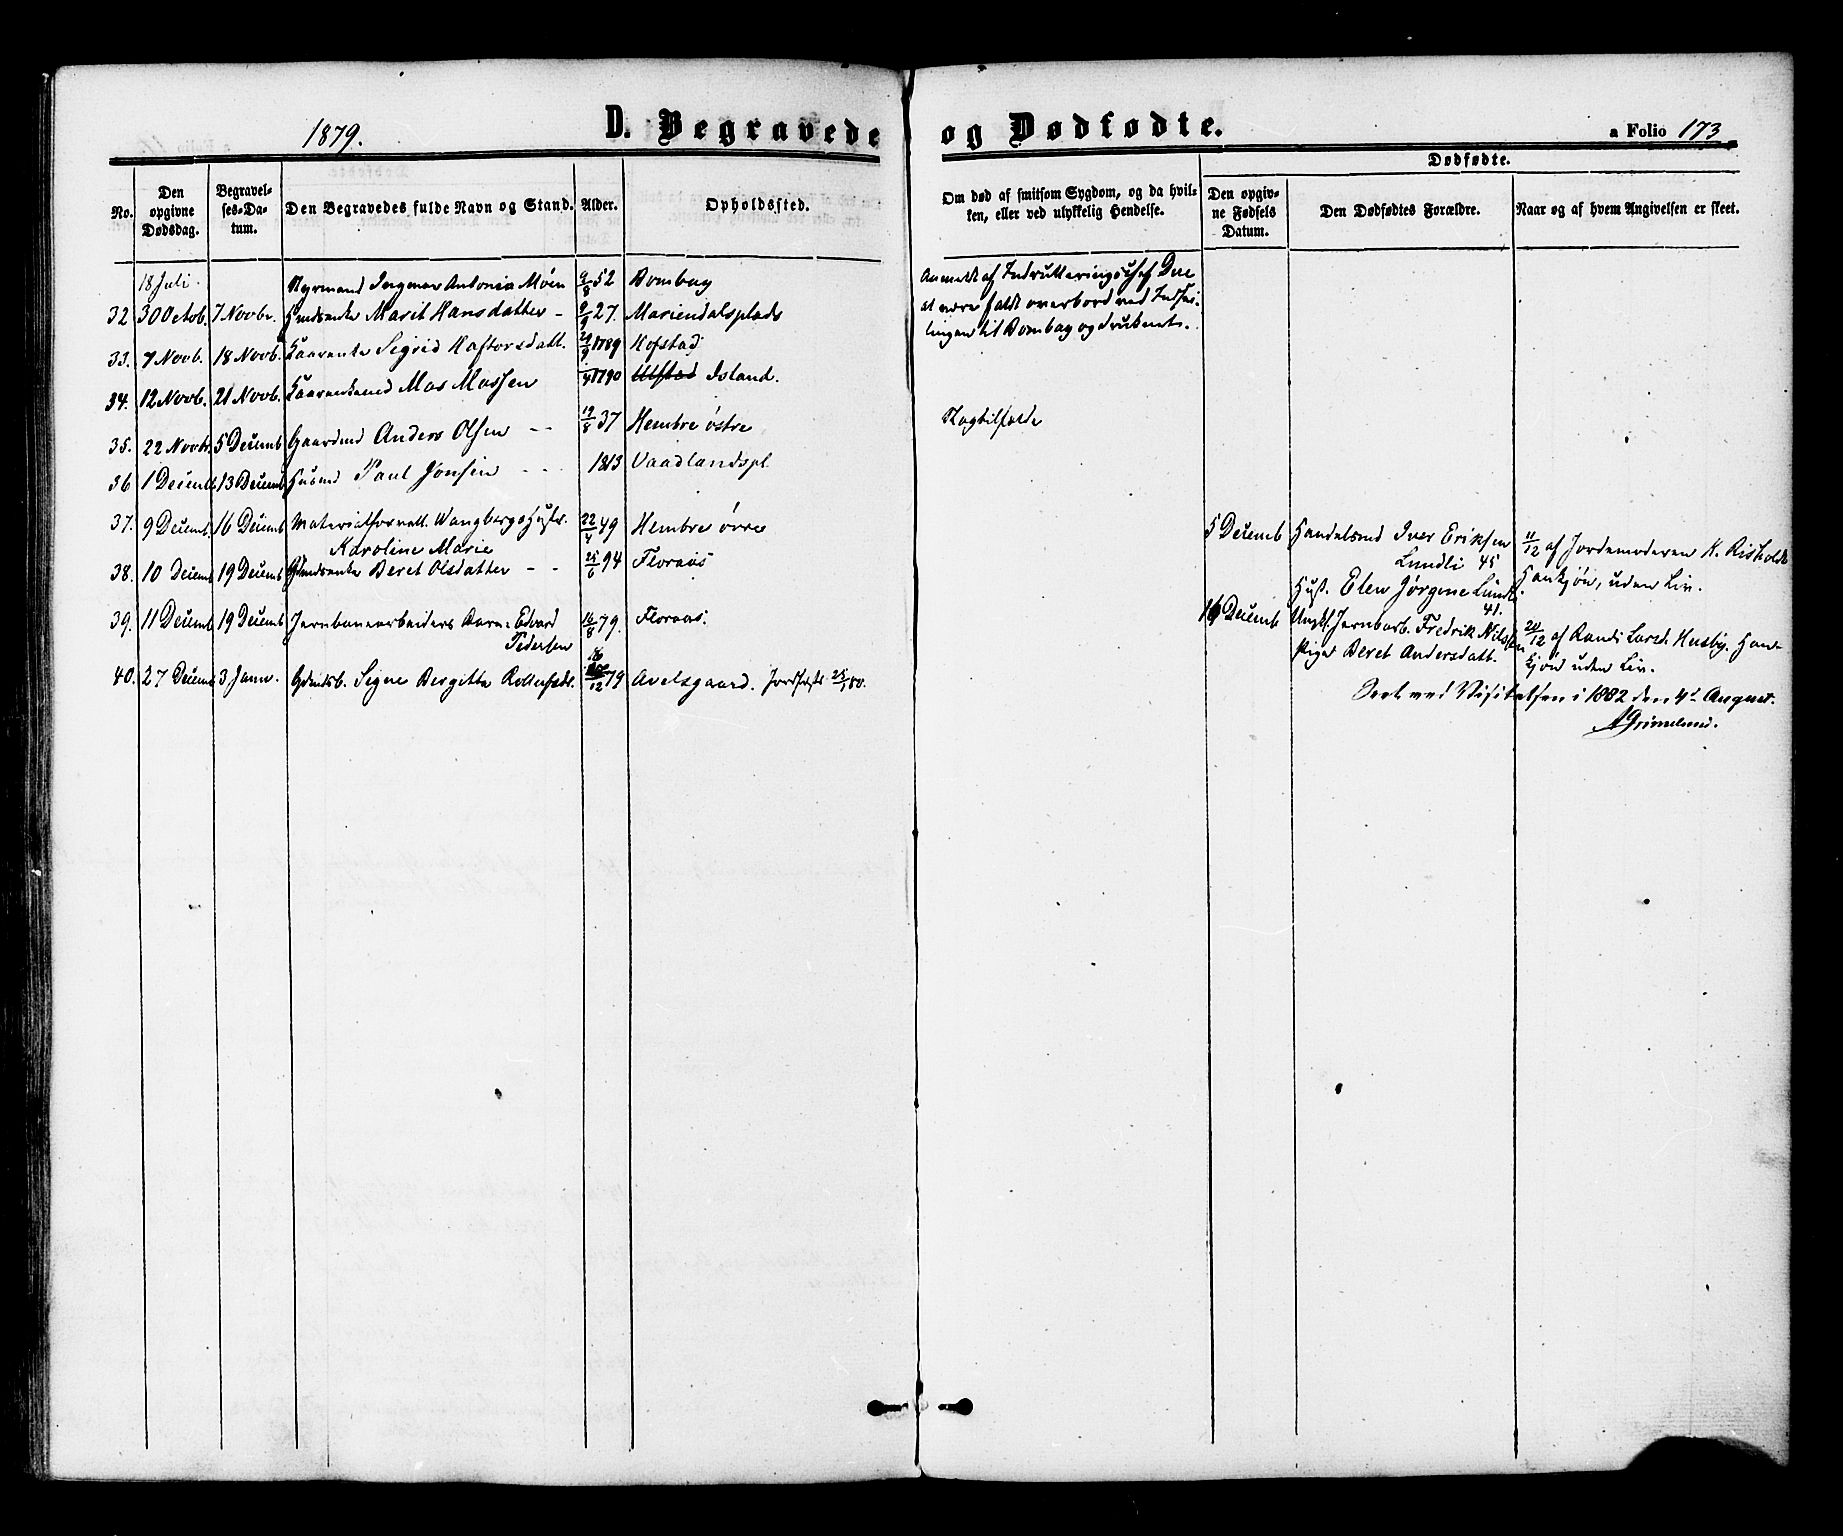 1879.
D. Begravede og Dødfødte.
a Folio 173
No.
Den opgivne Dødsdag.
Begravelses-Datum.
Den Begravedes fulde Navn og Stand.
Alder.
Opholdssted.
Om død af smitsom Sygdom, og da hvilken, eller ved ulykkelig Hendelse.
Dødfødte.
Den opgivne Fødsels Datum.
Den Dødfødtes Forældre.
Naar og af hvem Angivelsen er skeet.
18 Juli. Styrmand Ingemar Antonius Moen 9/8 52 Bombay
32 30 Octob. 7 Novbr. Marit Hansdatter - 9/9 27. Mariendalsplads
33. 7 Novb. 18 Novb. Kaarenke Sigrid Haftorsdatt. 29/9 1789 Hofstad
34. 12 Novb. 21 Novb. Kaarenkemd Mas Massen 1790 Island.
35. 22 Novbr. 5 Decemb Gaardmd Anders Olsen - - 19/8 37 Hembre østre
36 1 Decemb 13 Decemb Husmd Paul Jonsen - - - 1813 Vaadlandspl.
37. 9 Decemb. 16 Decemb Materialforvalt. Wangbergs Hustr. 22/4 49 Hembre øvre
Karoline Marie
38. 10 Decemb 19 Decemb Gmdsenke Beret Olsdatter - - 25/6 94 Floraas
39. 11 Decemb 19 Decemb Jernbanearbeiders Barn Edvard 16/8 79. Floraas.
Pedersen
40. 27 Decemb 3 Janr. Gdmdsb. Signe Bergitta Rollefsdt. 16/12 79 Avelsgaard. Jordfæst 25/1 80.
Anmeldt af Indrulleringschef Due
at være faldt overbord ved Indsei-
lingen til Bombay og druknet.
Slagtilfælde
5 Decemb Handelsmd Iver Eriksen
Lundli 45
Hust. Elen Jørgine Lundli
41.
11/12 af Jordemoderen K. Risholdt
Hankjøn, uden Liv.
16 Decemb Ungk. Jernbarb. Fredrik Nilsen
Pige Beret Andersdatt.
20/12 af Randi Larsd. Husby. Han-
kjøn uden Liv.
Seet ved Visitatsen i 1882 den 4d August.
A Grimelund.